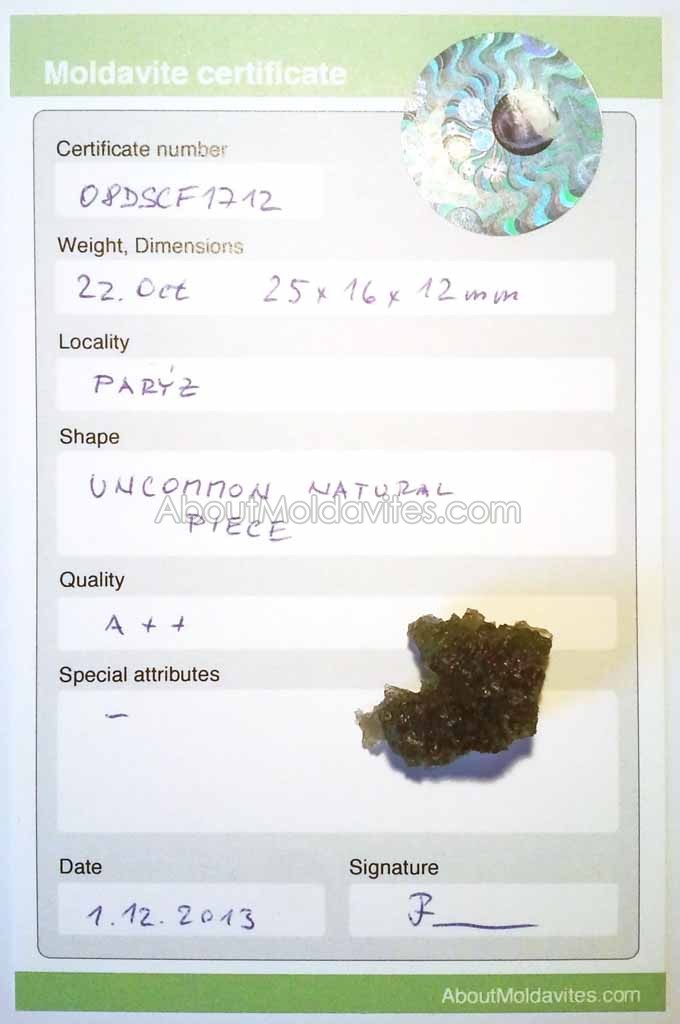 Moldavite certificate
Certificate number
08DSCF1712
Weight, Dimensions
22.0ct 25 x 16 x 12 mm
Locality
PARÝZ
Shape
UNCOMMON NATURAL
AboutMoldavites.com
PIECE
Quality
A++
Special attributes
–
Date Signature
1.12.2013
AboutMoldavites.com